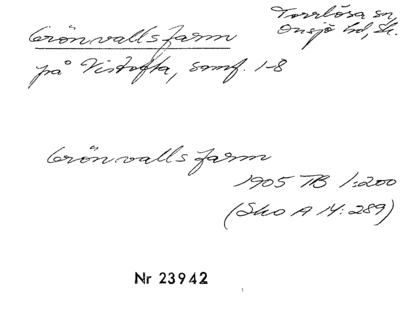 Grönvalls farm
Torrlösa sn
Onsjö hd, Sk.
på Vistofta, samf. 1-8
Grönvalls farm
1905 TB 1:200
(Sko A 14: 289)
Nr 23942